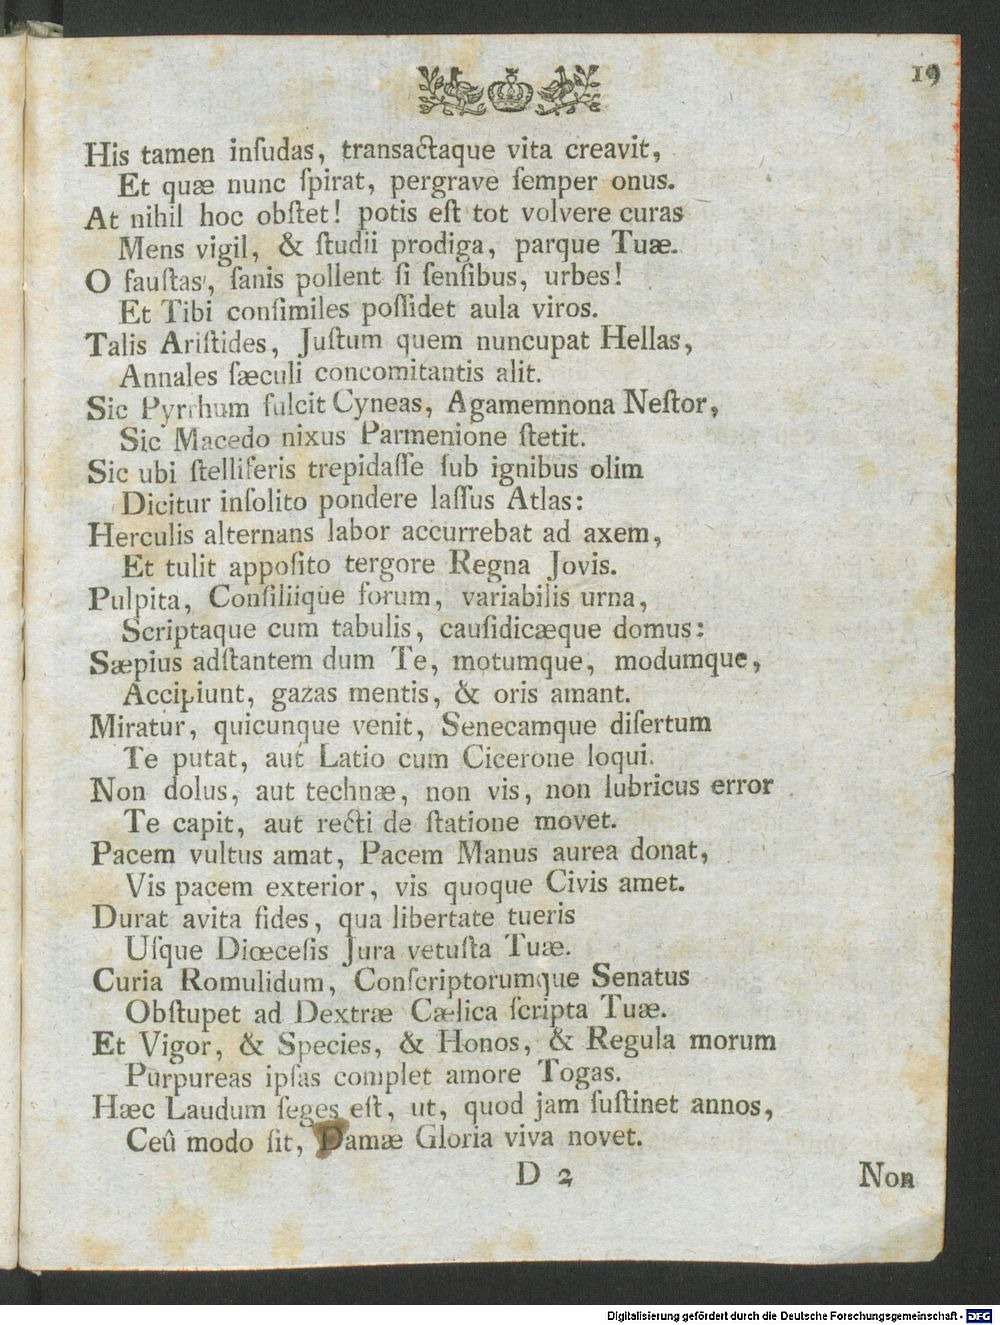 19
His tamen inſudas, transactaque vita creavit,
Et quæ nunc ſpirat, pergrave ſemper onus.
At nihil hoc obſtet! potis eſt tot volvere curas
Mens vigil, & ſtudii prodiga, parque Tuæ.
O fauſtas, ſanis pollent ſi ſenſibus, urbes!
Et Tibi conſimiles poſſidet aula viros.
Talis Ariſtides, Juſtum quem nuncupat Hellas,
Annales ſæculi concomitantis alit.
Sic Pyrrhum fulcit Cyneas, Agamemnona Neſtor,
Sic Macedo nixus Parmenione ſtetit.
Sic ubi ſtelliferis trepidaſſe ſub ignibus olim
Dicitur inſolito pondere laſſus Atlas:
Herculis alternans labor accurrebat ad axem,
Et tulit appoſito tergore Regna Jovis.
Pulpita, Conſiliique forum, variabilis urna,
Scriptaque cum tabulis, cauſidicæque domus:
Sæpius adſtantem dum Te, motumque, modumque,
Accipiunt, gazas mentis, & oris amant.
Miratur, quicunque venit, Senecamque diſertum
Te putat, aut Latio cum Cicerone loqui.
Non dolus, aut technæ, non vis, non lubricus error
Te capit, aut recti de ſtatione movet.
Pacem vultus amat, Pacem Manus aurea donat,
Vis pacem exterior, vis quoque Civis amet.
Durat avita fides, qua libertate tueris
Uſque Diœceſis Jura vetuſta Tuæ.
Curia Romulidum, Conſcriptorumque Senatus
Obſtupet ad Dextræ Cælica ſcripta Tuæ.
Et Vigor, & Species, & Honos, & Regula morum
Purpureas ipſas complet amore Togas.
Hæc Laudum ſeges eſt, ut, quod jam ſuſtinet annos,
Ceû modo ſit, Damæ Gloria viva novet.
D 2
Non
Digitalisierung gefördert durch die Deutsche Forschungsgemeinschaft - DFG